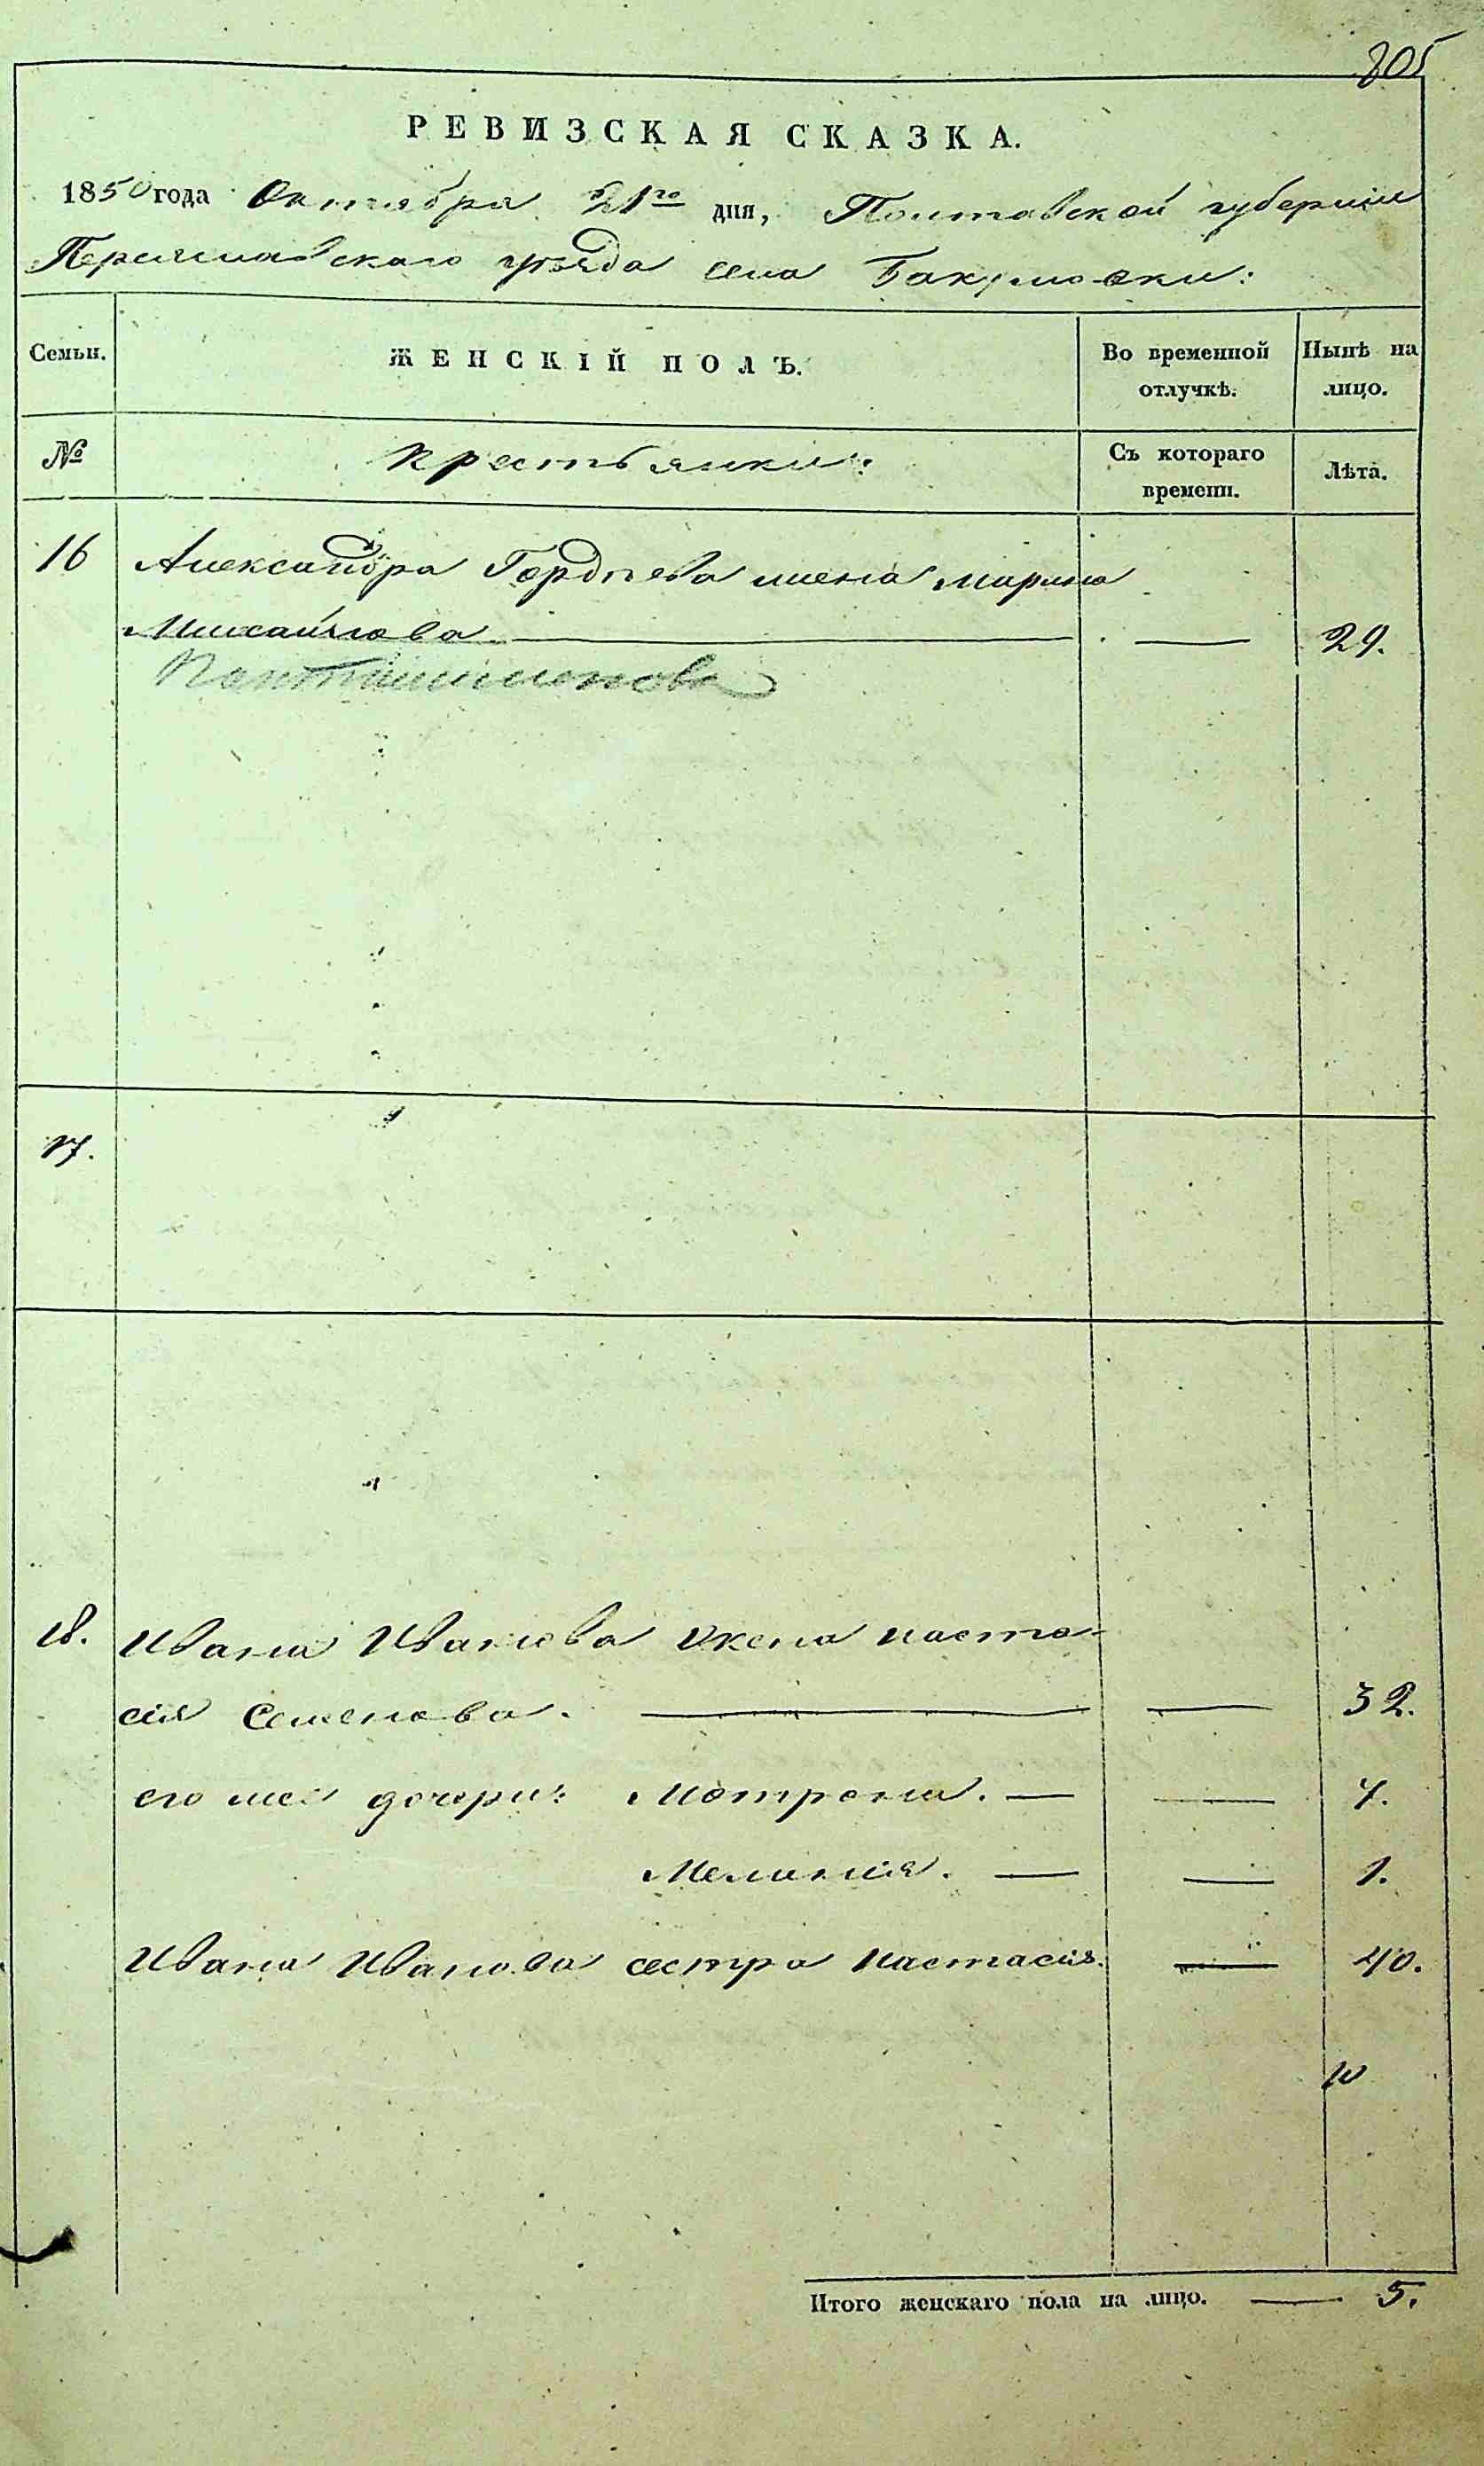 805
РЕВИЗСКАЯ СКАЗКА.
1850 года Октября 21го дня, Полтавской губернии
Переяславскаго уѣзда села Бакумовки:
Семьи. ЖЕНСКІЙ ПОЛЪ. Во временной отлучкѣ. Нынѣ на лицо.
№ Крестьянки: Съ котораго времени. Лѣта.
16 Александра Гордѣева жена Марина
Михайлова — — 29.
17.
18. Ивана Иванова жена Наста-
сія Семенова. — — 32.
его же дочери: Мотрона. — — 7.
Меланія. — — 1.
Ивана Иванова сестра Настасія. — 40.
Итого женскаго пола на лицо. — 5.